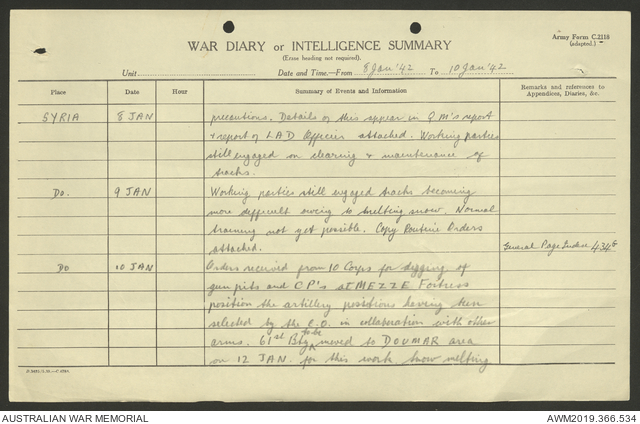 Army Form C.2118
(adapted.)
WAR DIARY or INTELLIGENCE SUMMARY
(Erase heading not required).
Unit
Date and Time.—From 8 Jan '42 To 10 Jan '42
Place Date Hour Summary of Events and Information Remarks and references to
Appendices, Diaries, &c.
SYRIA 8 JAN precautions. Details of this appear in Q M's report
& report of LAD Officer attached. Working parties
still engaged on clearing & maintenance of
tracks.
Do. 9 JAN Working parties still engaged tracks becoming
more difficult owing to melting snow. Normal
training not yet possible. Copy Routine Orders
attached. General Page 434
Do 10 JAN Orders received from 10 Corps for digging of
gun pits and C P's at MEZZE Fortress
position the artillery positions having been
selected by the in collaboration with other
arms. 61st Bty to be moved to DOUMAR area
on 12 JAN. for this work. Snow melting
AUSTRALIAN WAR MEMORIAL
AWM2019.366.534